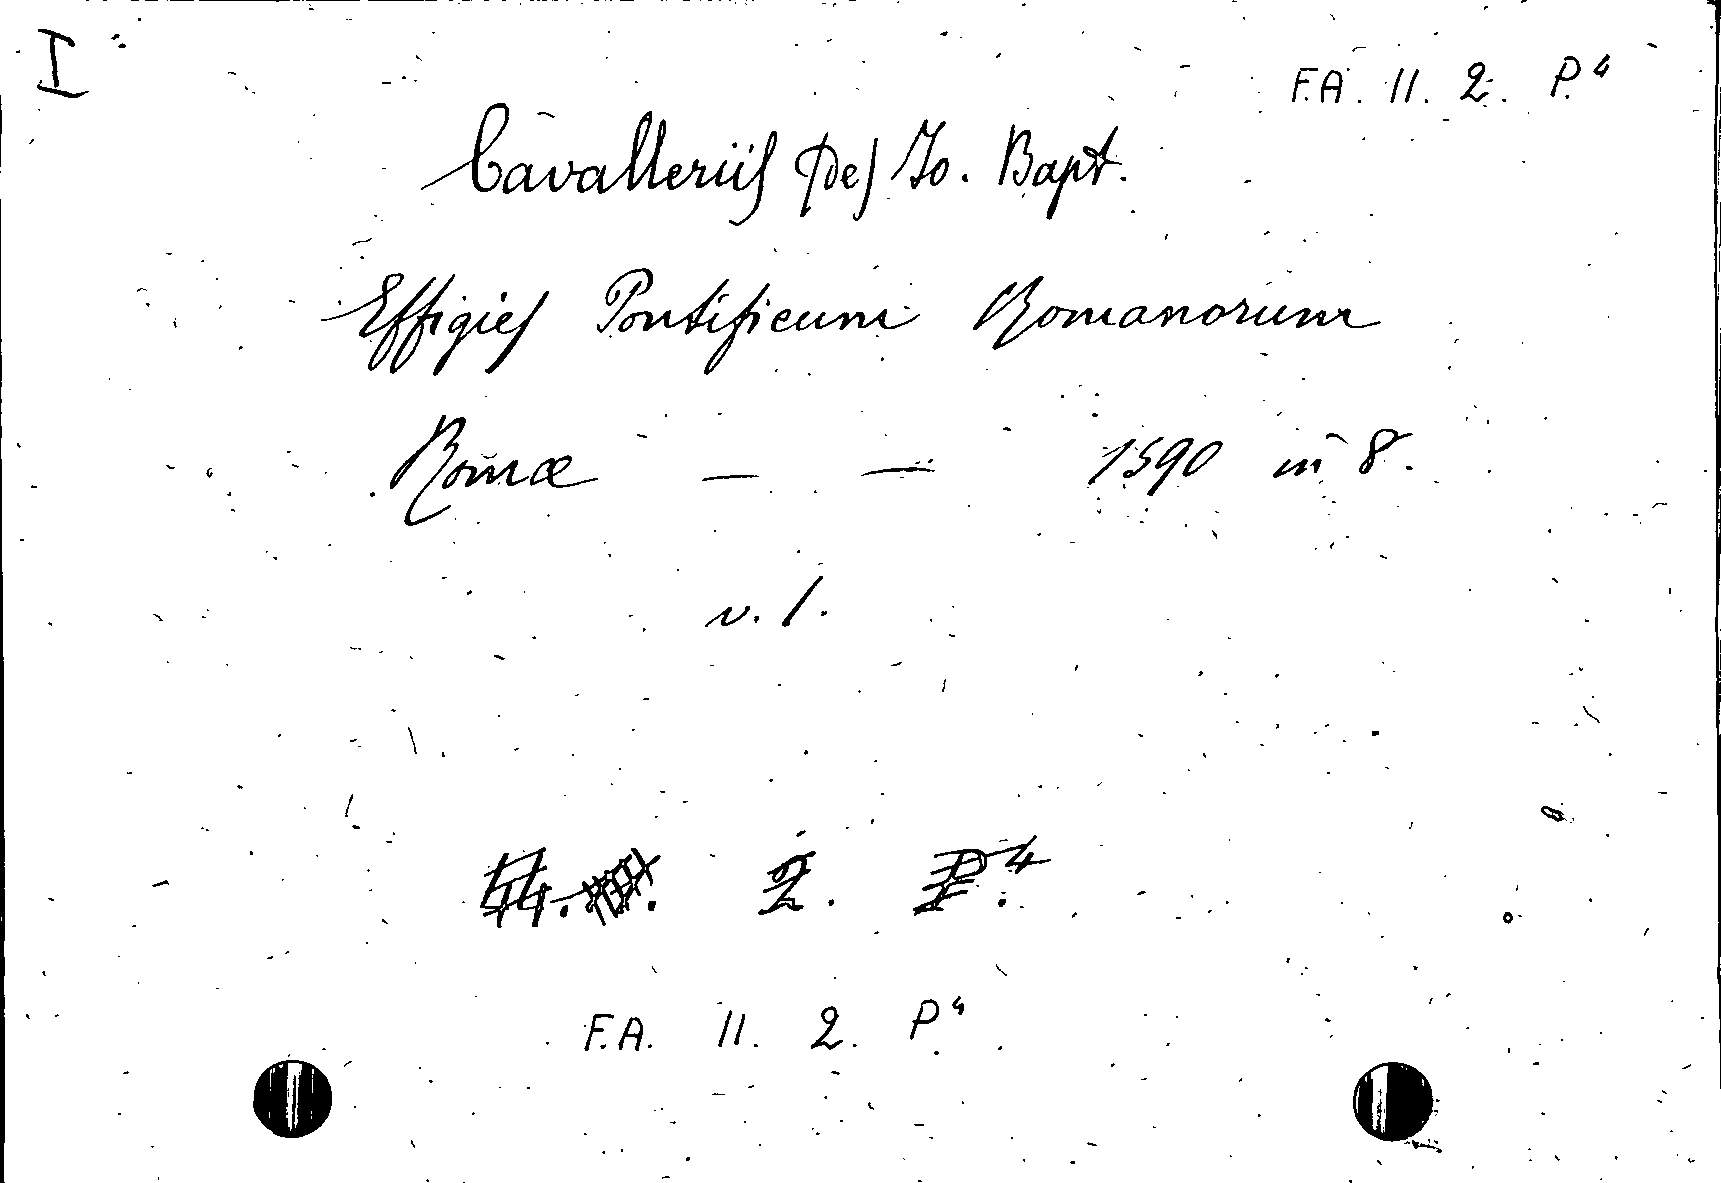 I
F.A. 11. 2. P.4
Cavalleriis (De) Jo. Bapt.
Effigies Pontificum Romanorum
Romæ — — 1590 in 8.
v. 1.
2. P.4
F.A. 11. 2. P.4